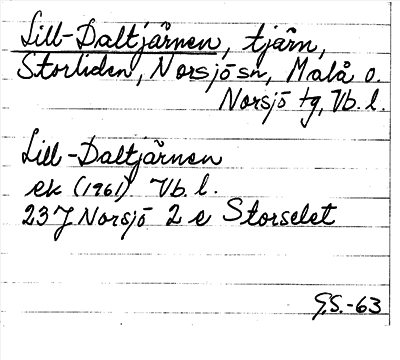 Lill-Daltjärnen, tjärn,
Storliden, Norsjö sn, Malå o.
Norsjö tg, Vb. l.
Lill-Daltjärnen
ek (1961) Vb. l.
23J Norsjö 2 e Storselet
G.S.-63